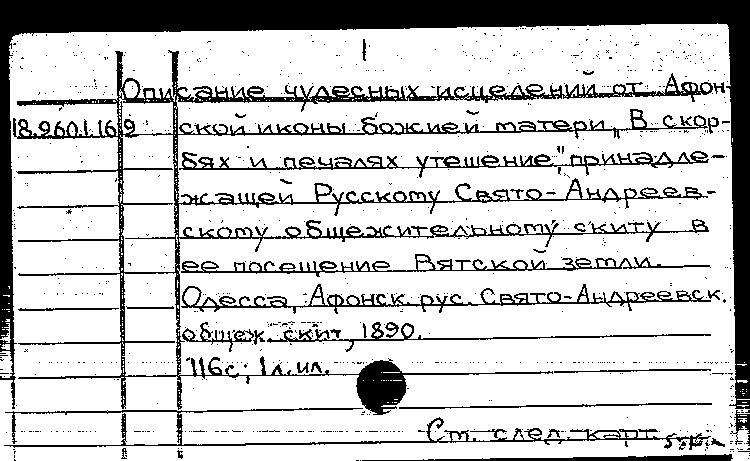 Описание чудесных исцелений от Афон-
18.260.1.169 ской иконы божией матери „В скор-
бях и печалях утешение," принадле-
жащей Русскому Свято-Андреев-
скому общежительному скиту в
ее посещение Вятской земли.
Одесса, Афонск. рус. Свято-Андреевск.
общеж. скит, 1890.
116с; 1л.ил.
См. след. карт.